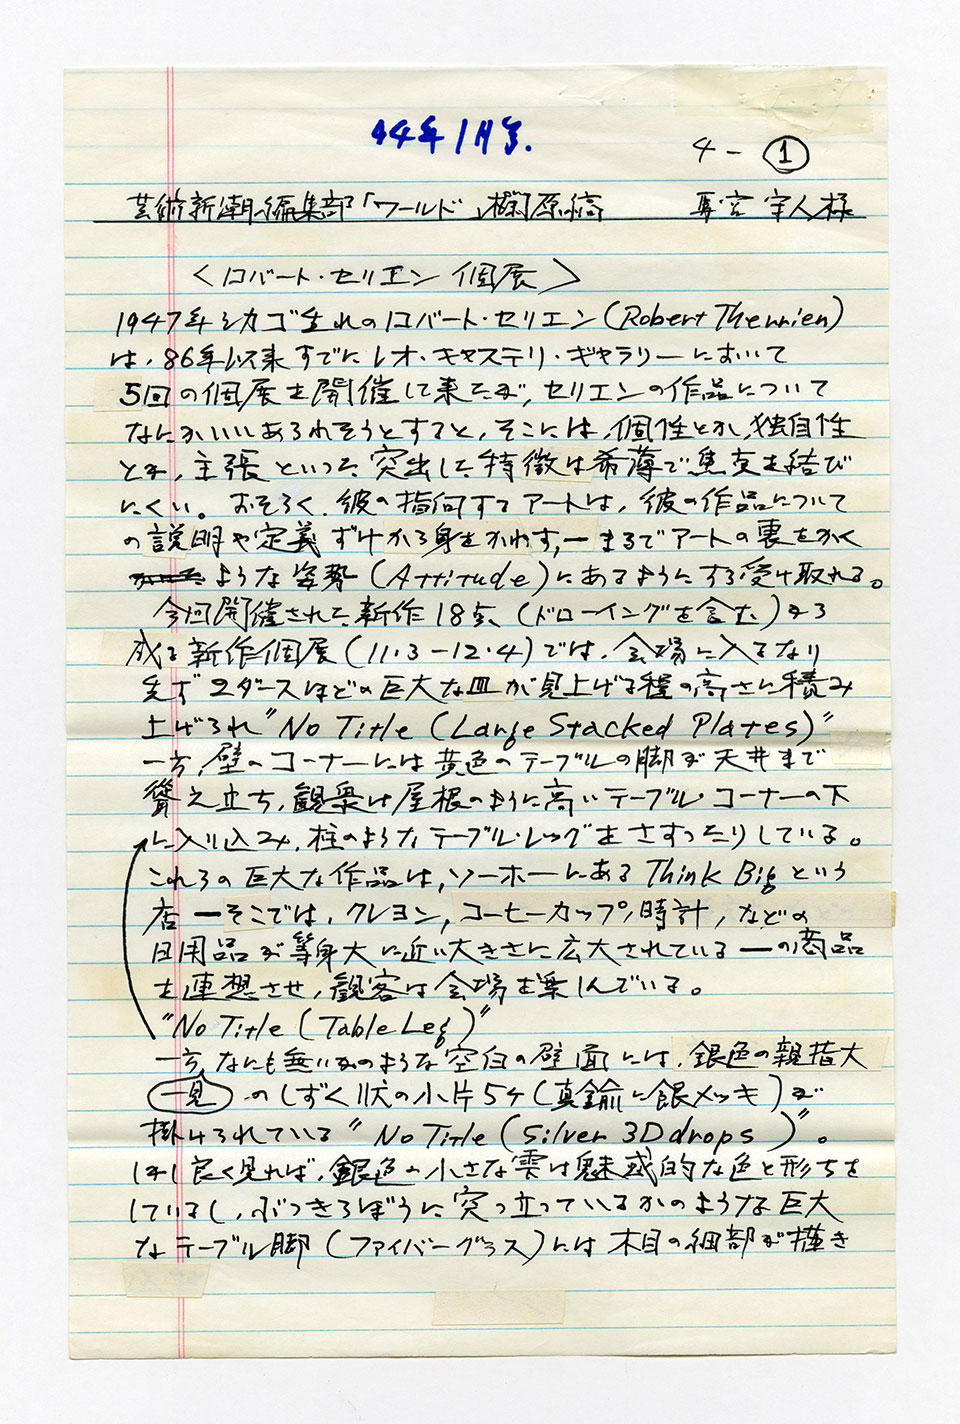 94年1月号.
4-①
芸術新潮編集部「ワールド」欄原稿 宇人様
<ロバート・セリエン 個展>
1947年シカゴ生れのロバート・セリエン(Robert Therrien)
は、86年以来すでにレオ・キャステリ・ギャラリーにおいて
5回の個展を開催して来たが、セリエンの作品について
なにかいいあらわそうとすると、そこには、個性とか、独自性
とか、主張といった突出した特徴は希薄で焦点を結び
にくい。おそらく、彼の指向するアートは、彼の作品について
の説明や定義ずけから身をかわす,ーまるでアートの裏をかく
ような姿勢(Attitude)にあるようにする受け取れる。
今回開催された新作18点、(ドローイングを含む)から
成る新作個展(11・3-12・4)では、会場に入るなり
先ず2ダースほどの巨大な皿が見上げる程の高さに積み
上げられ"No Title (Large Stacked Plates)"
一方,壁のコーナーには黄色のテーブルの脚が天井まで
聳え立ち,観衆は屋根のように高いテーブル・コーナーの下
に入り込み,柱のようなテーブル・レッグをさすったりしている。
これらの巨大な作品は,ソーホーにあるThink Bigという
店ーそこでは,クレヨン,コーヒーカップ,時計,などの
日用品が等身大に近い大きさに広大されているーの商品
を連想させ,観客は会場を楽しんでいる。
"No Title (Table Leg)"
一方,なにも無いかのような空白の壁面には,銀色の親指大
一見 のしずく状の小片5ケ(真鍮に銀メッキ)が
掛けられている"No Title (Silver 3D drops )"。
しかし良く見れば,銀色の小さな雫は魅惑的な色と形ちを
しているし,ぶっきらぼうに突っ立っているかのような巨大
なテーブル脚(ファイバーグラス)には木目の細部が描き